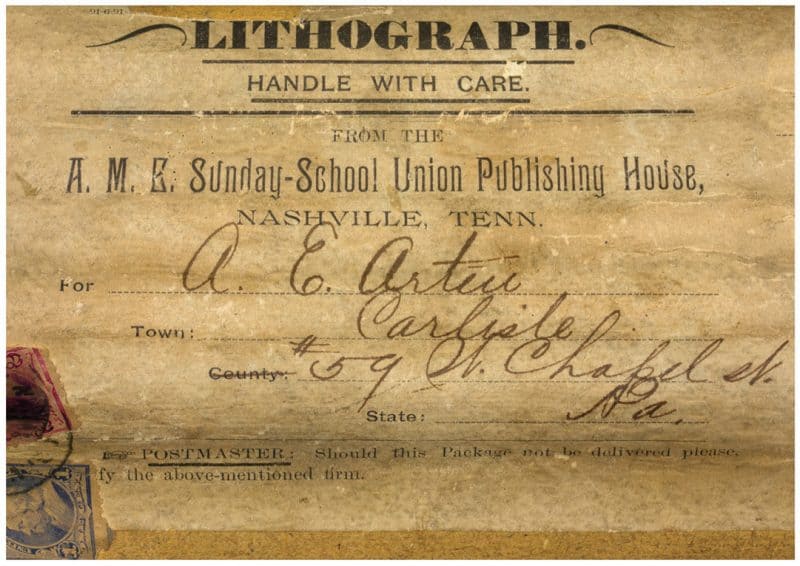 91-6-91
LITHOGRAPH.
HANDLE WITH CARE.
FROM THE
A. M. E. Sunday-School Union Publishing House,
NASHVILLE, TENN.
For A. E. Arter
Town: Carlisle
County: #59 W. Chapel st.
State: Pa.
POSTMASTER: Should this Package not be delivered please,
fy the above-mentioned firm.